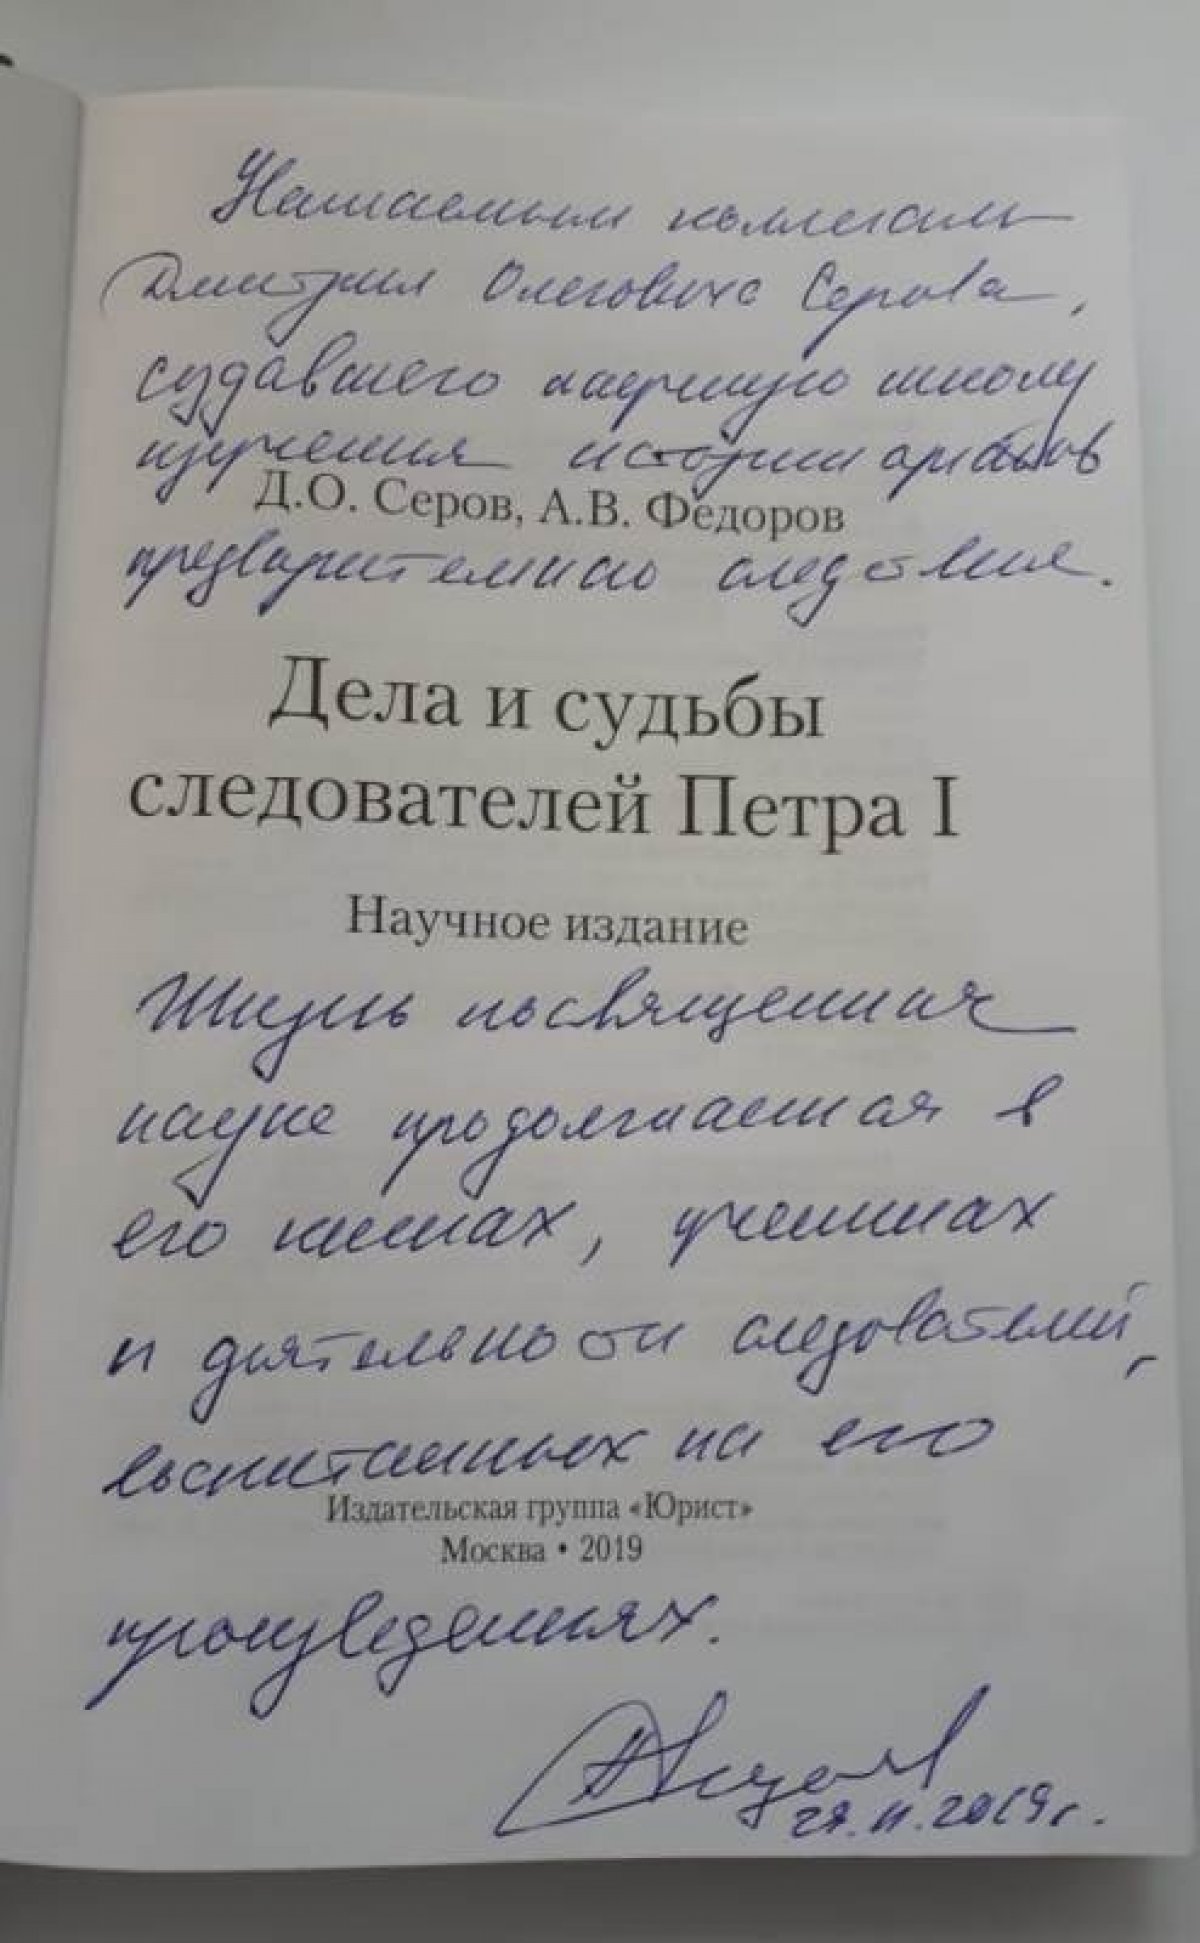 Уважаемым коллегам
Дмитрия Олеговича Серова,
создавшего научную школу
изучения истории органов
Д.О. Серов, А.В. Федоров
предварительного следствия.
Дела и судьбы
следователей Петра I
Научное издание
Жизнь посвященная
науке продолженная в
его книгах, учениках
и деятельности следователей,
воспитанных на его
Издательская группа «Юрист»
Москва • 2019
произведениях.
29.11.2019г.